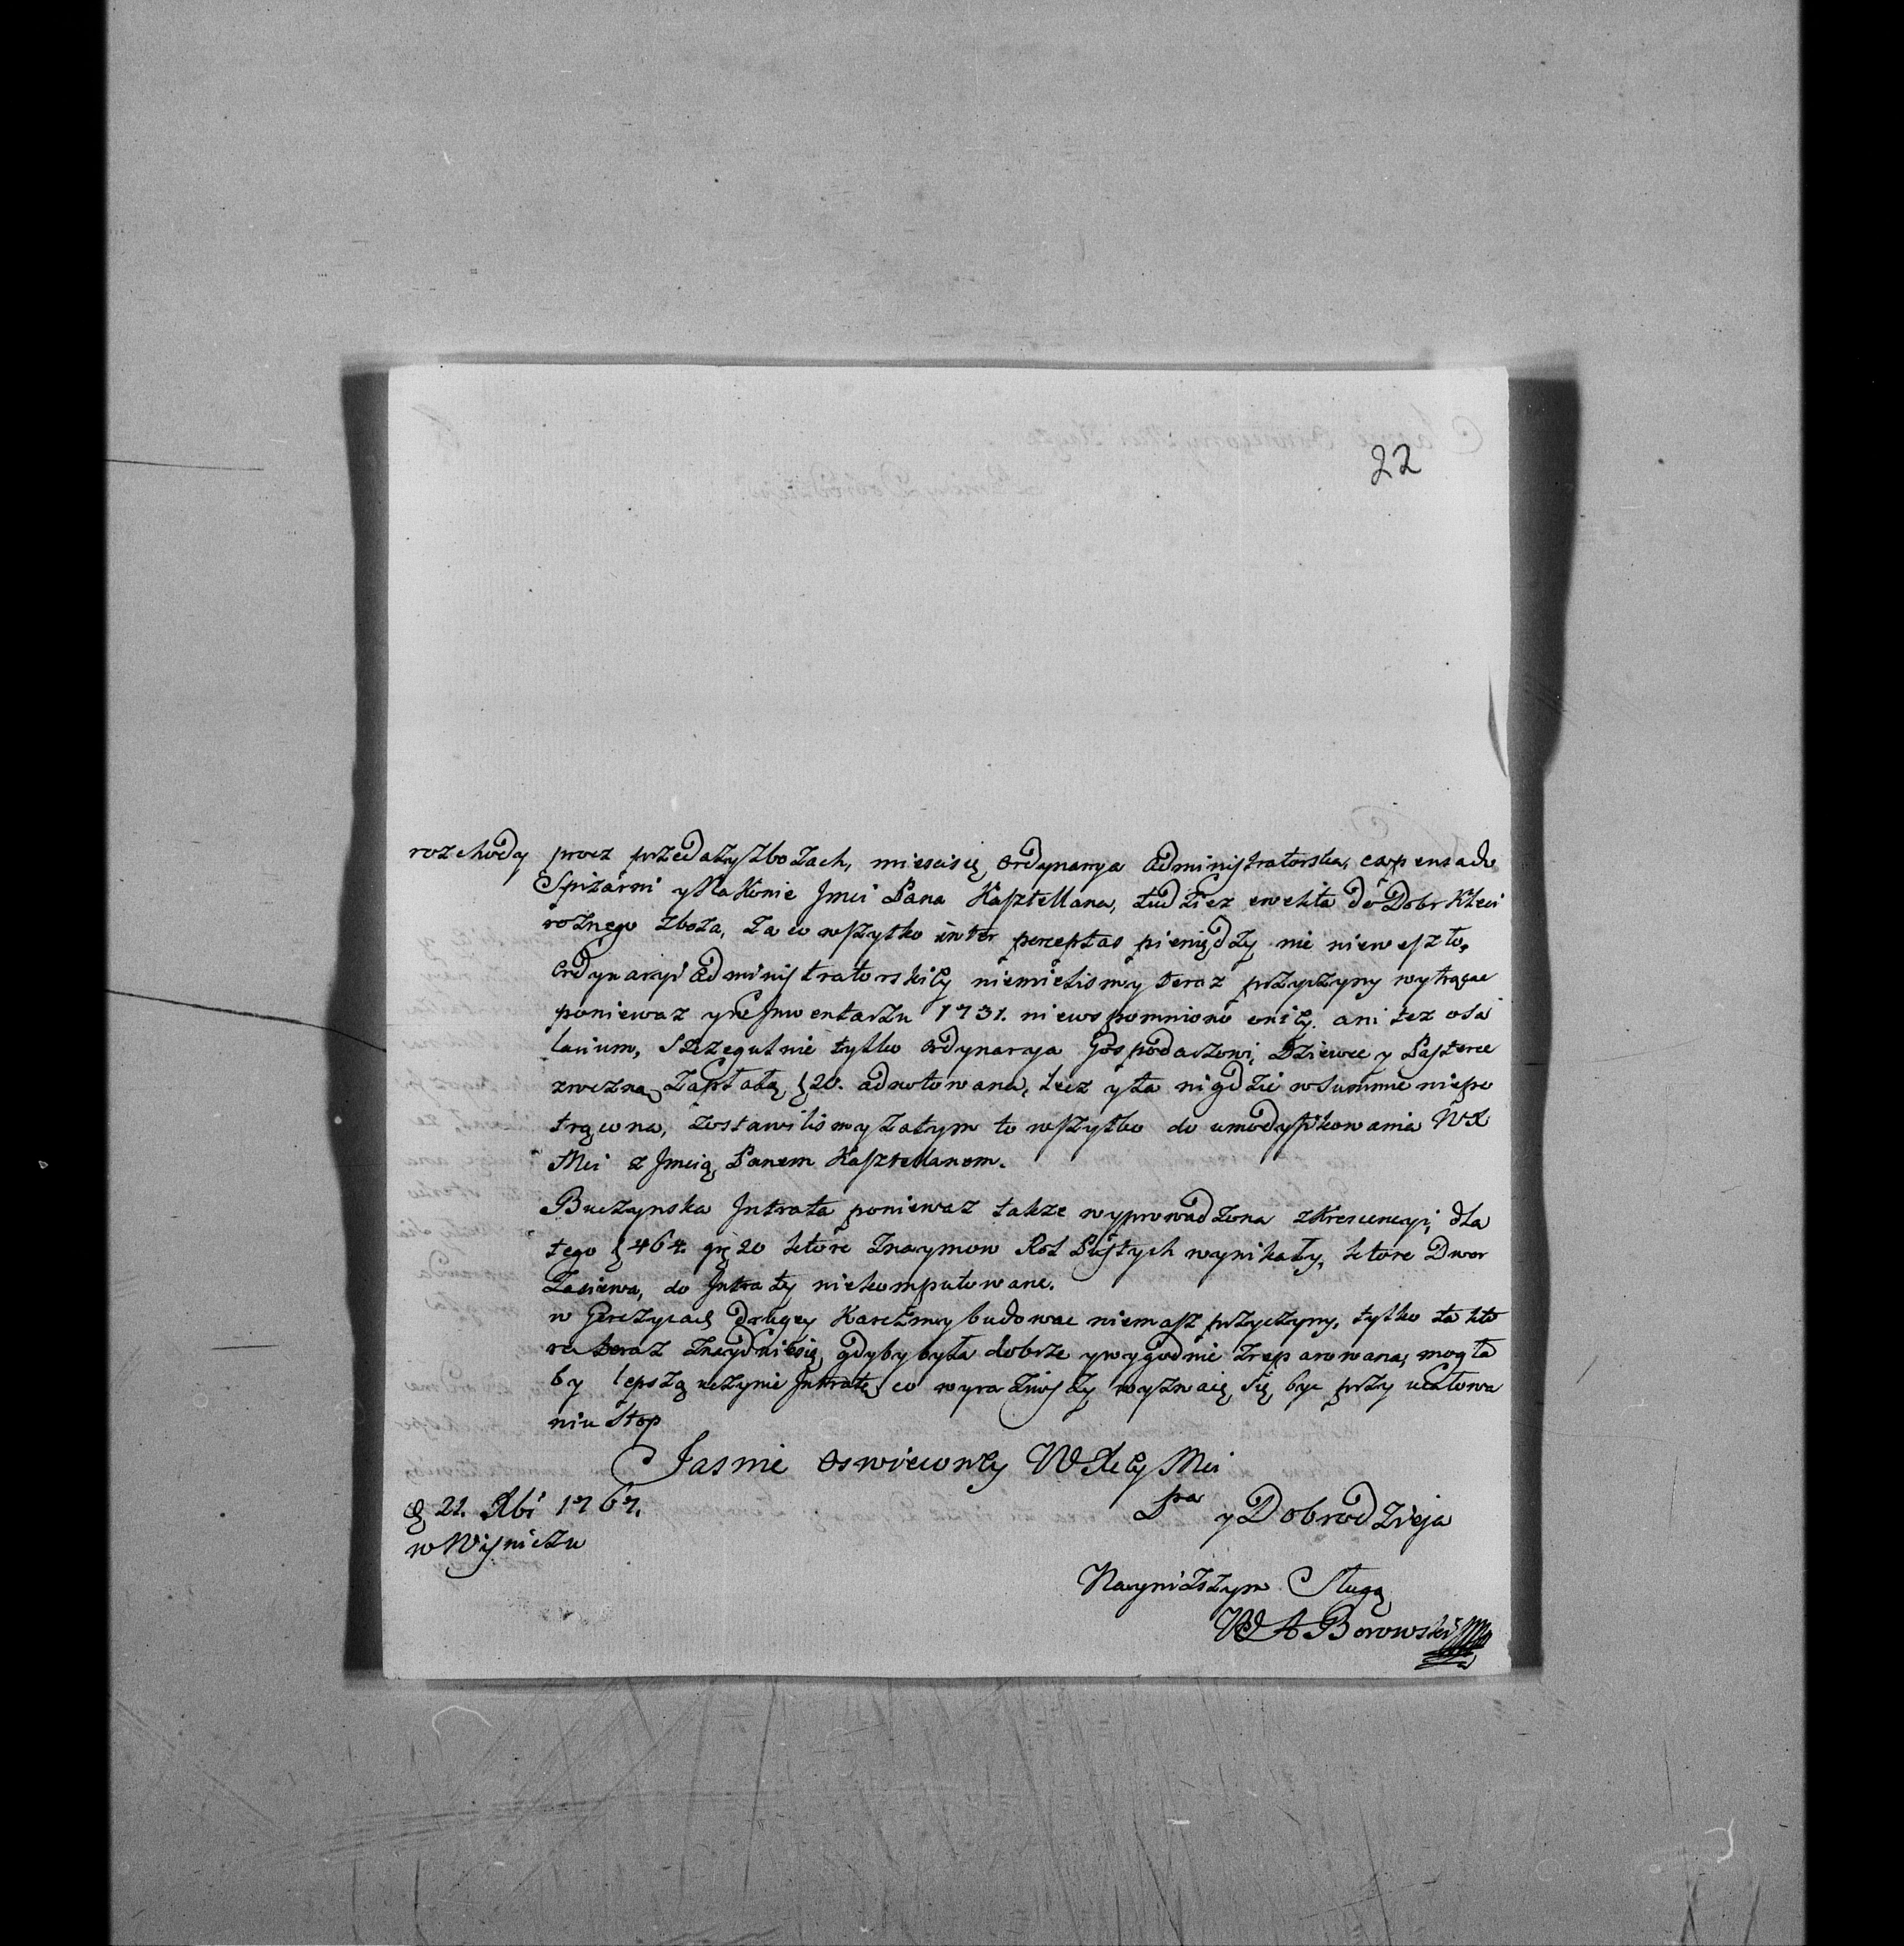 22
rozchody procz przedaży zbożach, miescisię Ordynarya Administratorska, expensa do
Spiżarni y Na Konie Jmci Pana Kasztellana, tudziez ewekta do Dobr Kleci
rożnego zboża, za co wszytko inter perceptas pieniędzy nic nieweszło,
Ordynaryi Administratorskiey niemielismy teraz przyczyny wytrącac
poniewaz y w Jnwentarzu 1731. niewspomniono oniey. ani tez osa
larium, szczegulnie tylko Ordynarya Gospodaszowi, Dziewce y Pasterce
zroczną Zapłatą ł 20. adnotowana, lecz y ta nigdzie w Summie niepo
trącona, zostawilismy zatym to wszytko do umodyfikowania WX
Mci z Jmcią Panem Kasztellanem.
Buczynska Jntrata poniewaz takze wyprowadzona zKrescencyi, dla
tego ł 464. gr 20 ktore Znaymow Rol Pustych wynikały, ktore Dwor
Zasiewa, do Jntraty niekomputowane.
w Gerczycach drugey Karczmy budowac niemasz przyczyny, tylko ta kto
ra teraz znaydniesię, gdyby była dobrze ywygodnie zreparowana, mogła
by lepszą uczynic Jntratę, co wyraziwszy wyznaię się byc przy ucałowa
niu Stop
Jasnie Oswiecony WXcey Mci
Pna y Dobrodzieja
d 21. Xbr 1767.
w Wisniczu
Nayniższym Sługą
WA Borowski